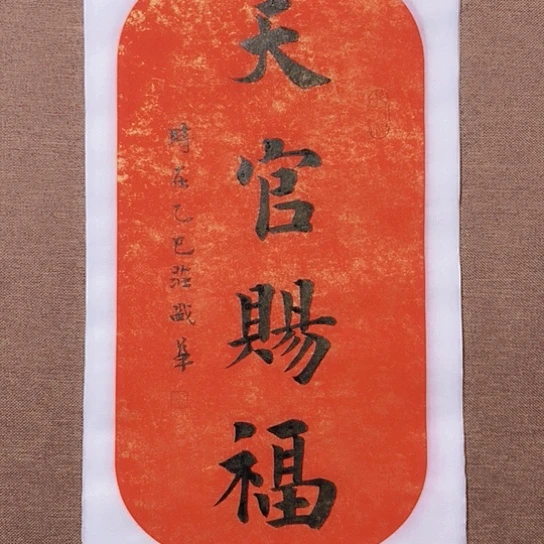 天官賜福
時在乙巳莊戲筆